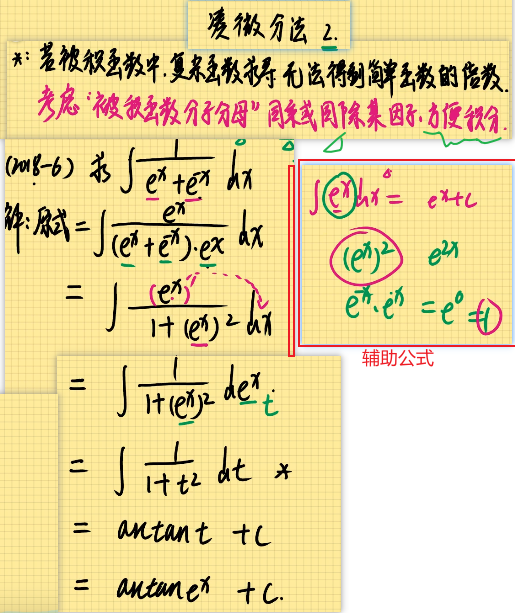 凑微分法 2.
*: 若被积函数中,复杂函数求导无法得到简单函数的倍数.
考虑"被积函数分子分母"同乘或同除某因子,方便积分.
(2018-6) 求 ∫ 1/(eˣ+e⁻ˣ) dx
解:原式 = ∫ eˣ/((eˣ+e⁻ˣ)·eˣ) dx
= ∫ (eˣ)/(1+(eˣ)²) dx
= ∫ 1/(1+(eˣ)²) deˣ t
= ∫ 1/(1+t²) dt *
= arctant +C
= arctaneˣ +C.
∫ eˣ dx = eˣ+C
(eˣ)² e²ˣ
e⁻ˣ·eˣ = e⁰ = 1
辅助公式